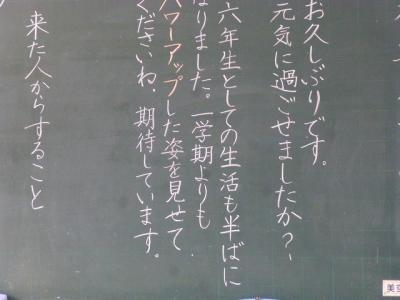 お久しぶりです。
元気に過ごせましたか？、
六年生としての生活も半ばに
なりました。一学期よりも
パワーアップした姿を見せて
くださいね。期待しています。
来た人からすること